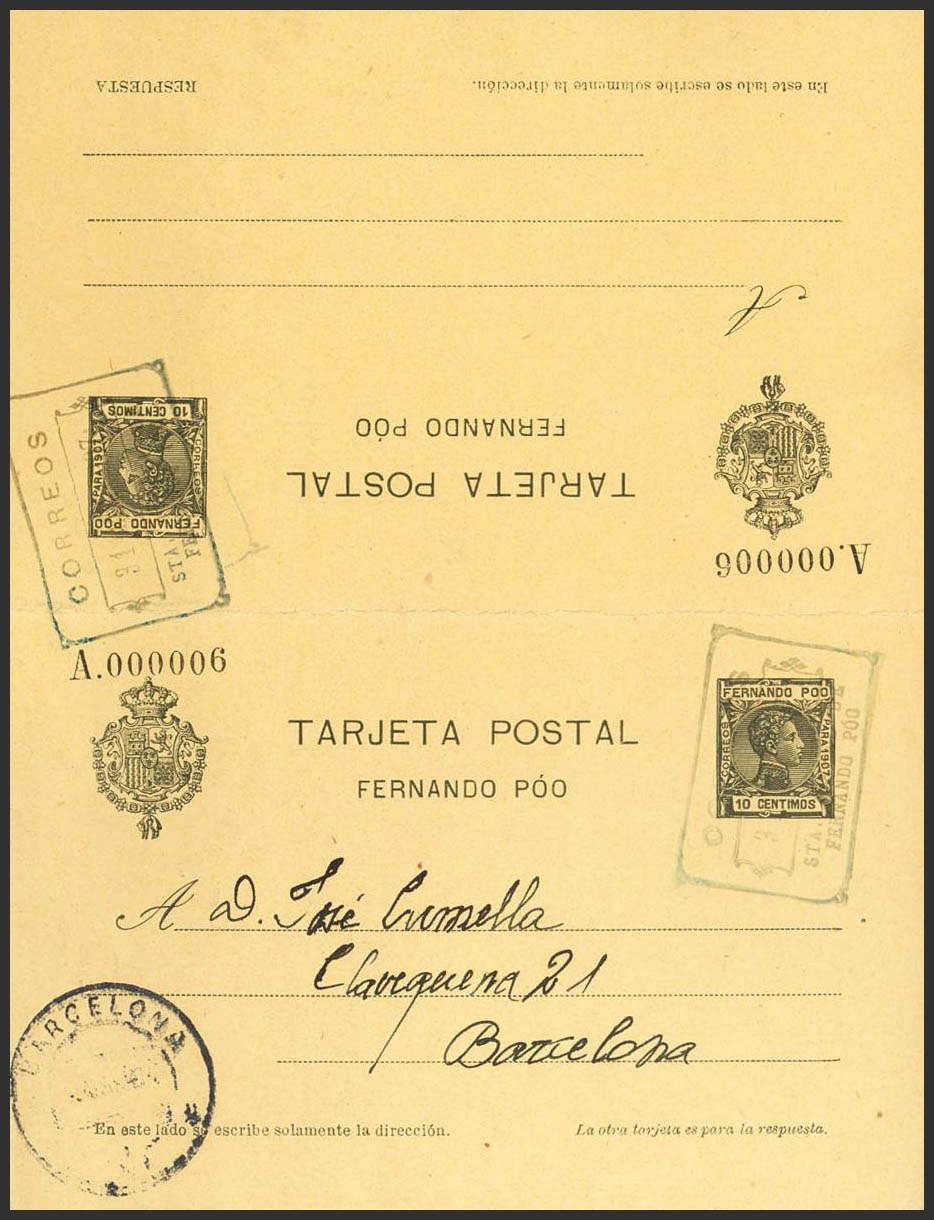 RESPUESTA
En este lado se escribe solamente la dirección.
A
A.000006
TARJETA POSTAL
FERNANDO PÓO
FERNANDO POO
CORREOS
PARA 1907
10 CENTIMOS
CORREOS
91
STA.
FE
A.000006
TARJETA POSTAL
FERNANDO PÓO
FERNANDO POO
CORREOS
PARA 1907
10 CENTIMOS
STA.
FERNANDO PÓO
A D. José Cumella
Claveguera 21
Barcelona
BARCELONA
En este lado se escribe solamente la dirección.
La otra tarjeta es para la respuesta.